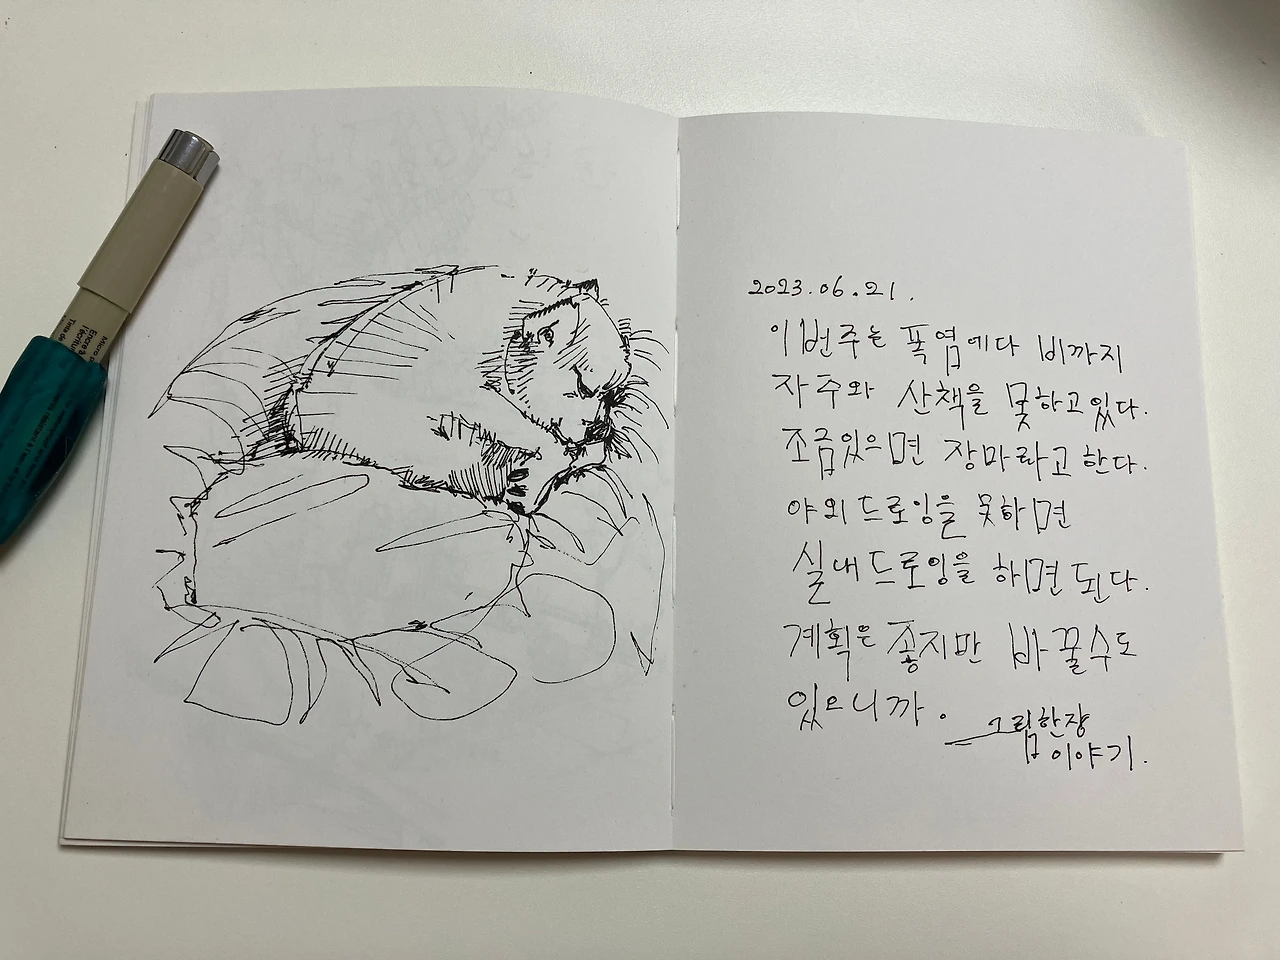 2023.06.21.
이번주는 폭염에다 비까지
자주와 산책을 못하고있다.
조금있으면 장마라고한다.
야외드로잉을 못하면
실내드로잉을 하면된다.
계획은 좋지만 바꿀수도
있으니까.
그림한장
이야기.
Micro
Encre à
l'écritu
Tinta de